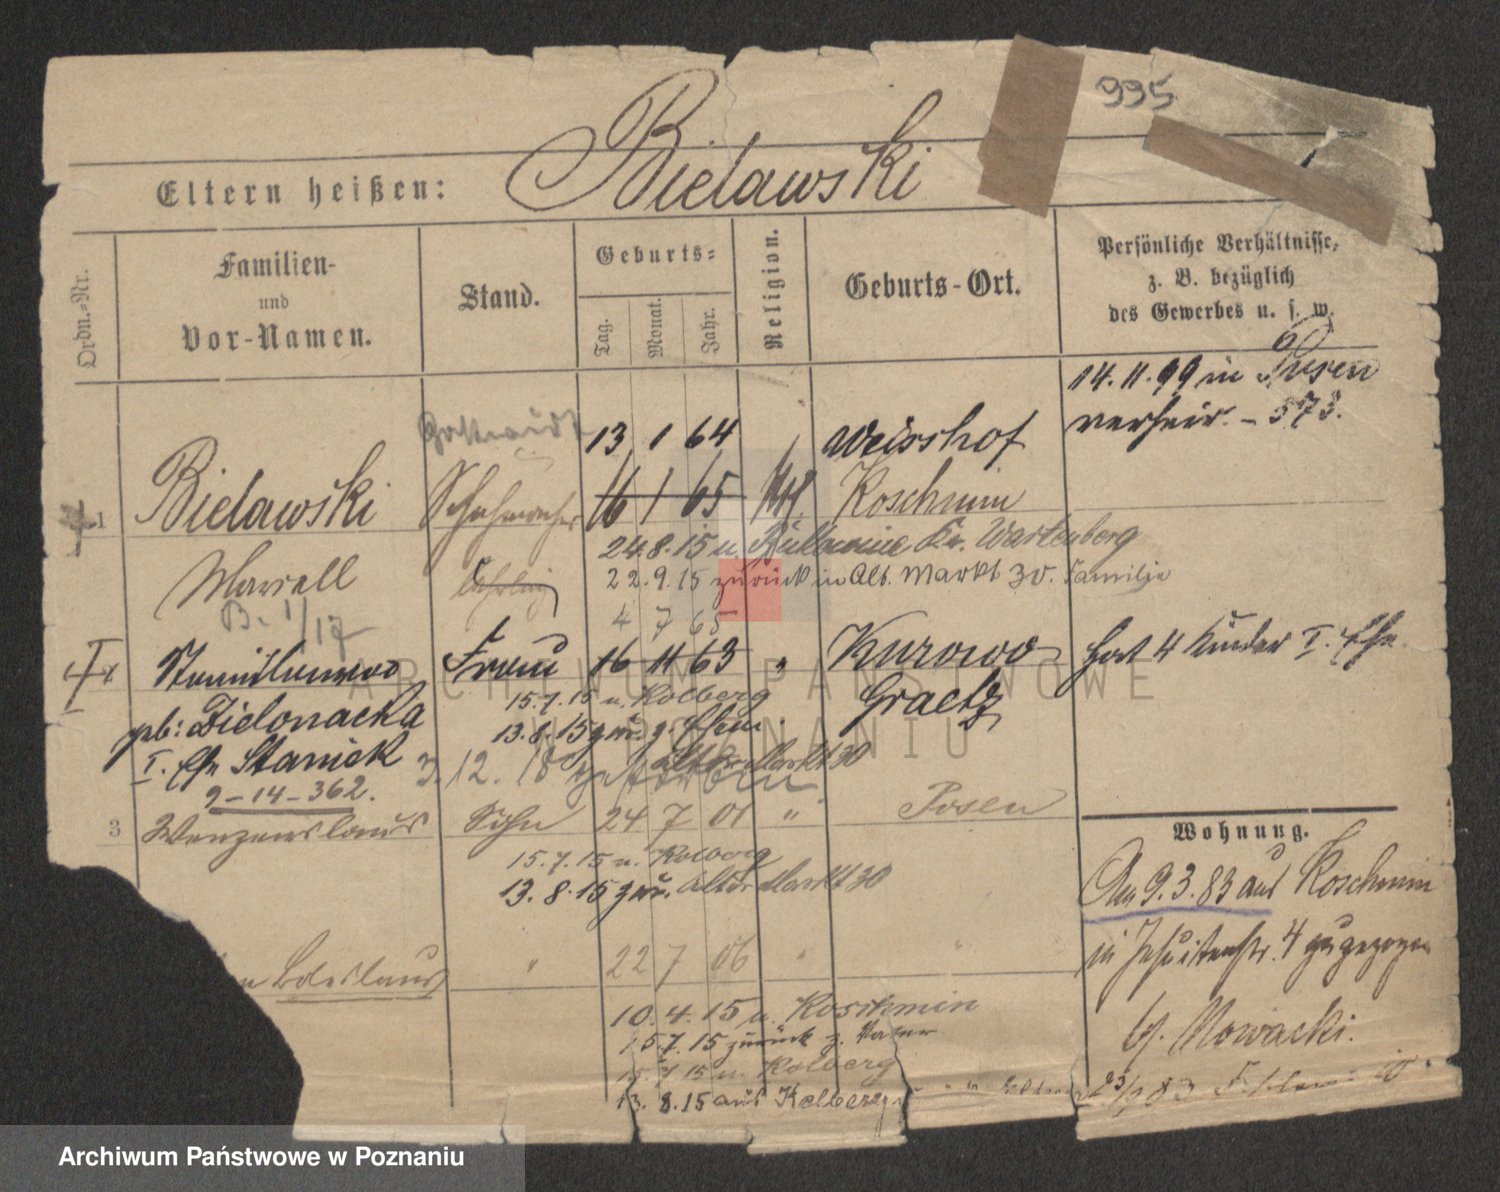 995
Eltern heißen: Bielawski
Ordn.-Nr.
Familien-
und
Vor-Namen.
Stand.
Geburts-
Tag.
Monat.
Jahr.
Religion.
Geburts-Ort.
Persönliche Verhältnisse,
z. B. bezüglich
des Gewerbes u. s. w.
14. 11. 99 in Posen
verheir. - 573.
13 1 64 Weisshof
1 Bielawski Schuhmacher 16 1 65 kath. Koschmin
24.8.15 n. Kr. Wartenberg
Marcell Lehrling 22.9.15 zurück in Alt. Markt 30. Familie
B. 1/17 4 7 65
Frau 16 11 63 " Kurowo hat 4 Kinder I. Ehe.
15.7.15 n. Kolberg Graetz
geb: Zielonacka 13.8.15 zur.
I. Ehe Stanick 3. 12. 18 gestorben Alter Markt 30
9-14-362.
3 Wenzenslaus Sohn 24 7 01 " Posen
15.7.15 n. Kolberg
13.8.15 zur. Alter Markt 30
Boleslaus " 22 7 06 " "
10.4.15 n. Koschmin
15.7.15 zurück z. Vater
15.7.15 n. Kolberg
13.8.15 aus Kolberg
Wohnung.
Am 9.3.83 aus Koschmin
in Jesuitenstr. 4 zugezogen
b/. Nowacki.
ARCHIWUM PAŃSTWOWE
W POZNANIU
Archiwum Państwowe w Poznaniu